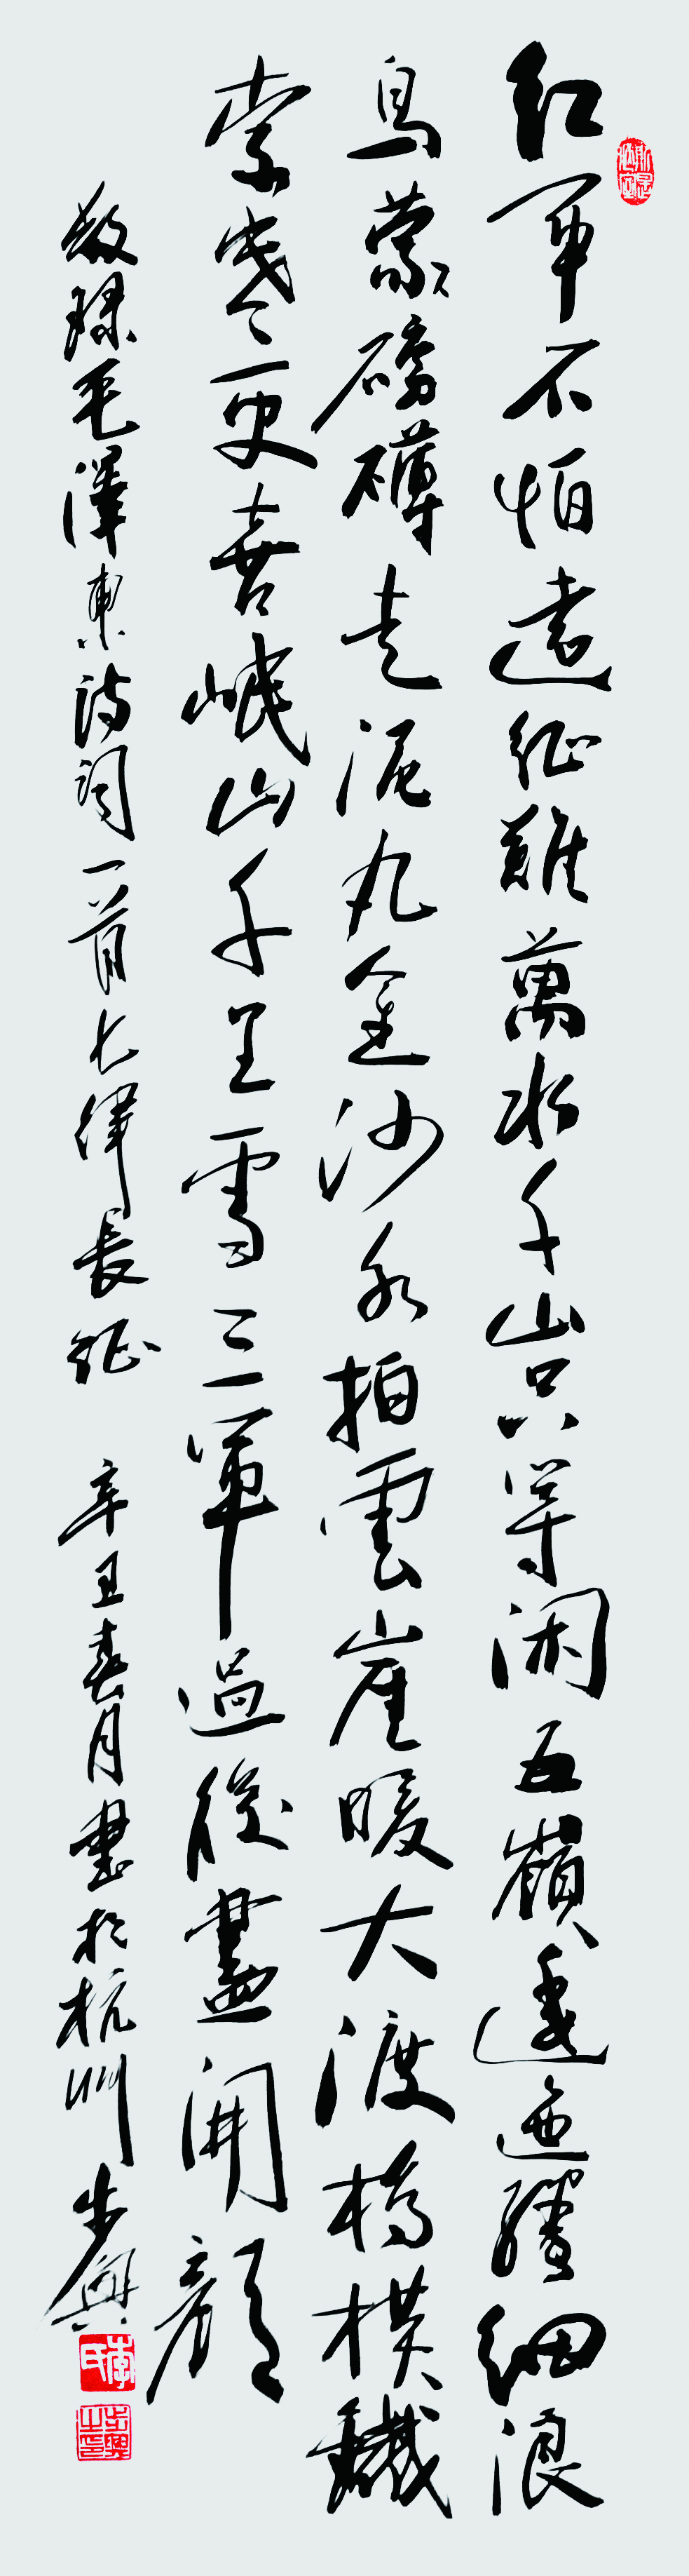 紅軍不怕遠征難萬水千山只等閑五嶺逶迤騰細浪
烏蒙磅礴走泥丸金沙水拍雲崖暖大渡橋橫鐵
索寒更喜岷山千里雪三軍過後盡開顏
敬録毛澤東詩詞一首七律長征 辛丑春月書於杭州步興
李氏
步興之印